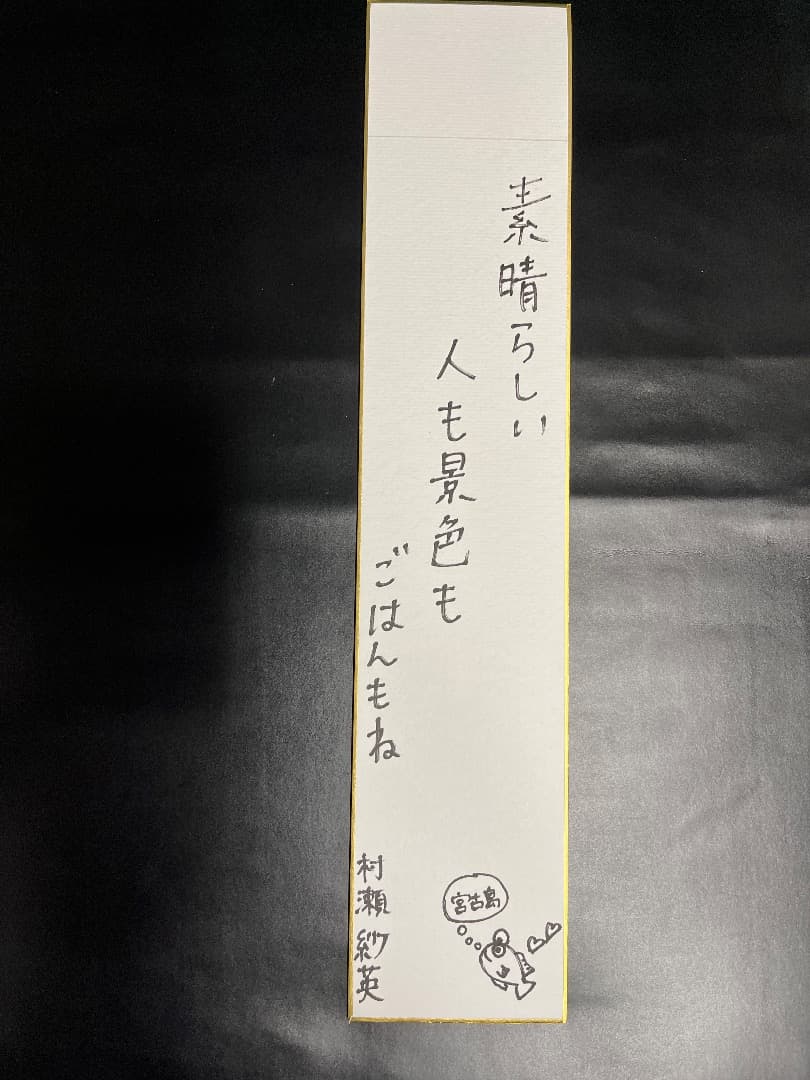 素晴らしい
人も景色も
ごはんもね
村瀬紗英
宮古島